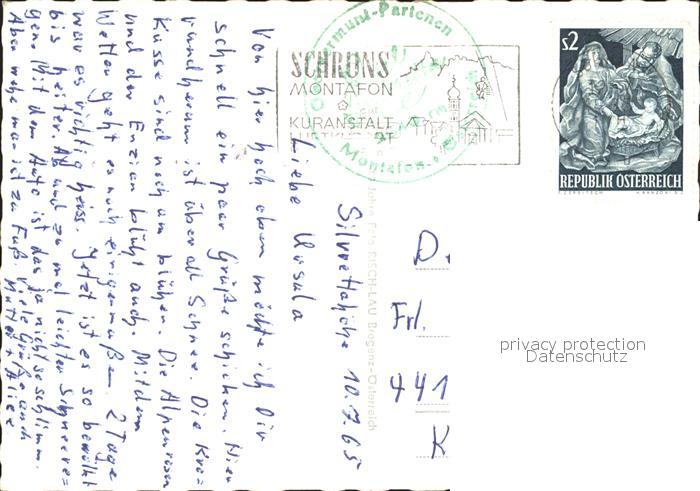 Silvrettahöhe 10.7.65
Liebe Ursula
Von hier hoch oben möchte ich Dir
schnell ein paar Grüße schicken. Hier
rundherum ist überall Schnee. Die Kro=
kusse sind noch am blühen. Die Alpenrosen
und der Enzian blüht auch. Mit dem
Wetter geht es noch einigermaßen. 2 Tage
war es richtig heiss. Jetzt ist es so bewölkt
bis heiter. Ab und zu mal leichter Schneere=
gen. Mit dem Auto ist das ja nicht so schlimm.
Aber wehe man ist zu Fuß. Viele Grüße auch
Mutter +
SCHRUNS
MONTAFON
KURANSTALT
LUFTKURORT
Partenen
Montafon
S2
REPUBLIK ÖSTERREICH
Foto RISCH-LAU Bregenz-Österreich
D.
Frl.
441
K
privacy protection
Datenschutz